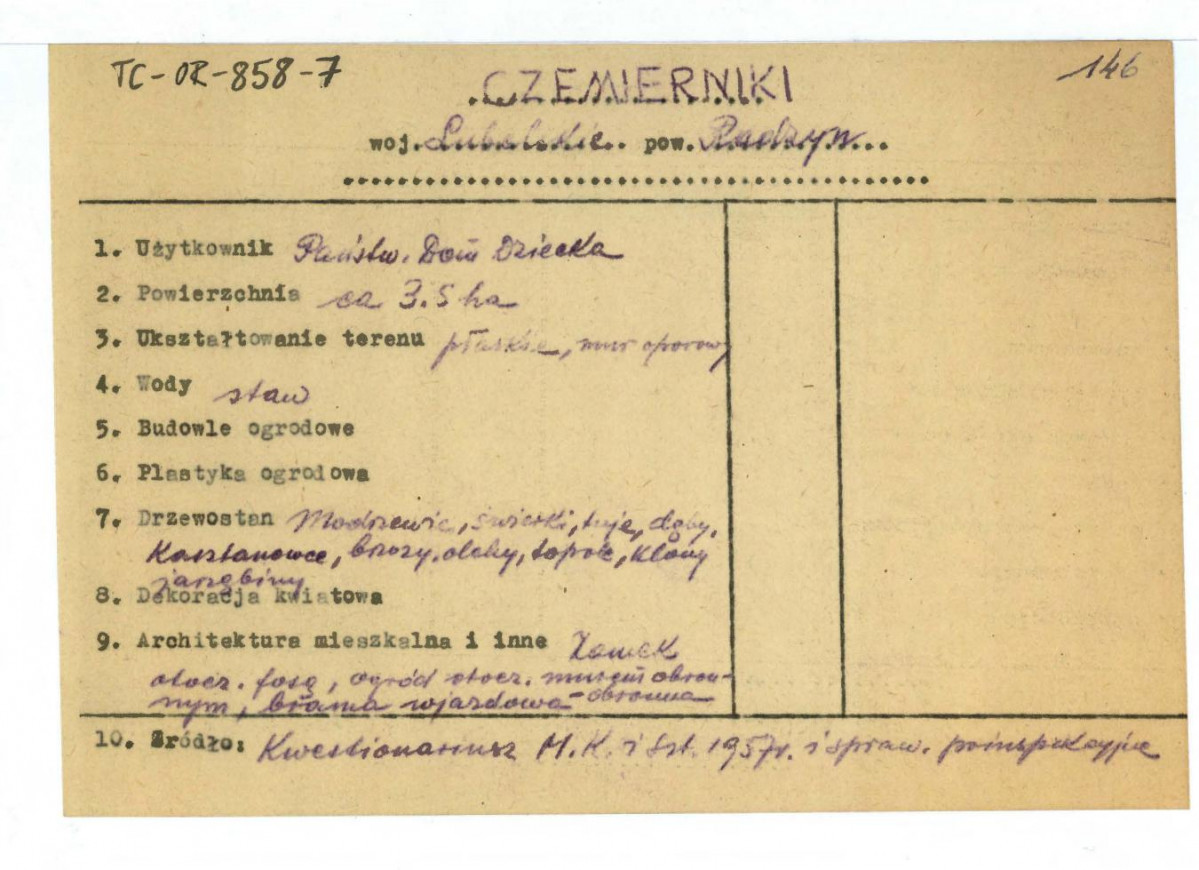 TC-OR-858-7
146
CZEMIERNIKI
woj. Lubelskie pow. Radzyn
1. Użytkownik Państw. Dom Dziecka
2. Powierzchnia ca 3.5 ha
3. Ukształtowanie terenu płaskie, mur oporowy
4. Wody staw
5. Budowle ogrodowe
6. Plastyka ogrodowa
7. Drzewostan Modrzewie, świerki, tuje, dęby,
Kasztanowce, brzozy, olchy, topole, klony
jarzębiny
8. Dekoracja kwiatowa
9. Architektura mieszkalna i inne Zamek
otocz. fosą, ogród otocz. murem obron-
nym, brama wjazdowa - obronna
10. Źródło: Kwestionariusz M.K. i Szt. 1957r. i spraw. poinspekcyjne